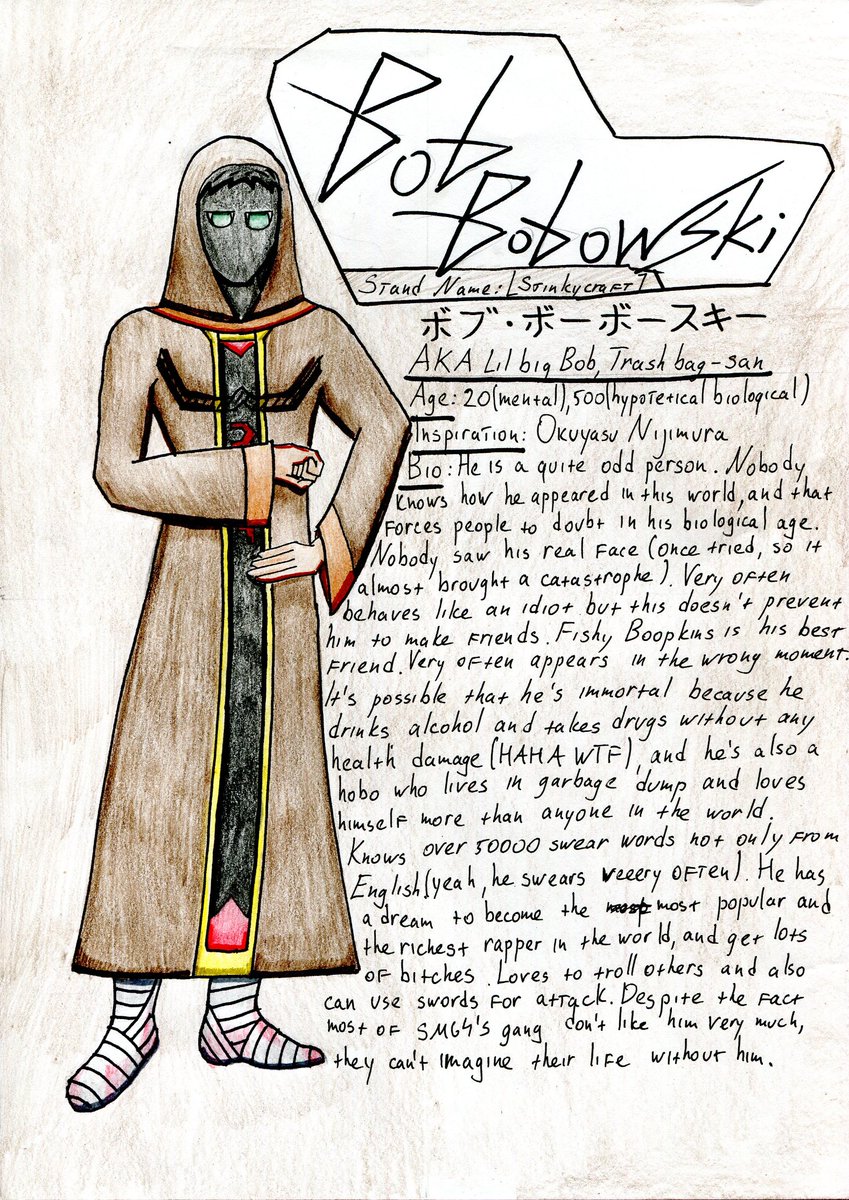 Bob
Bobowski
Stand Name: 「Stinkycraft」
ボブ・ボーボースキー
AKA Lil big Bob, Trash bag-san
Age: 20(mental), 500(hypotetical biological)
Inspiration: Okuyasu Nijimura
Bio: He is a quite odd person. Nobody
knows how he appeared in this world, and that
forces people to doubt in his biological age.
Nobody saw his real face (once tried, so it
almost brought a catastrophe). Very often
behaves like an idiot but this doesn't prevent
him to make friends. Fishy Boopkins is his best
friend. Very often appears in the wrong moment.
It's possible that he's immortal because he
drinks alcohol and takes drugs without any
health damage (HAHA WTF), and he's also a
hobo who lives in garbage dump and loves
himself more than anyone in the world.
Knows over 50000 swear words not only from
English (yeah, he swears veeery often). He has
a dream to become the most popular and
the richest rapper in the world, and get lots
of bitches. Loves to troll others and also
can use swords for attack. Despite the fact
most of SMG4's gang don't like him very much,
they can't imagine their life without him.